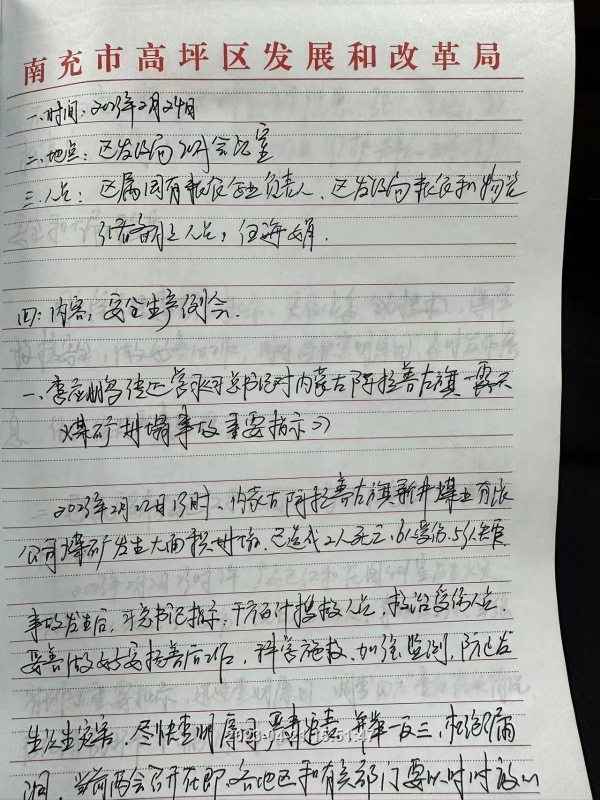 南充市高坪区发展和改革局
一、时间：2023年2月24日
二、地点：区发改局 会议室
三、人员：区属国有粮食企业负责人、区发改局粮食和物资
人员，任海
四：内容：安全生产例会.
一、李 传达 总书记对内蒙古阿拉善左旗一露天
煤矿坍塌事故重要指示》
2023年2月22日13时、内蒙古阿拉善左旗新井煤业有限
公司煤矿发生大面积坍塌.已造成2人死亡.6人受伤.53人失联
事故发生后，习总书记指示：千方百计搜救人员，救治受伤人员.
要 做好安抚善后工作.科学施救、加强监测，防止发
生次生灾害.尽快查明原因，严肃追责、并举一反三，杜绝漏
洞.当前两会召开在即.各地区和有关部门要以时时放心
2023-04-21 16:51:4